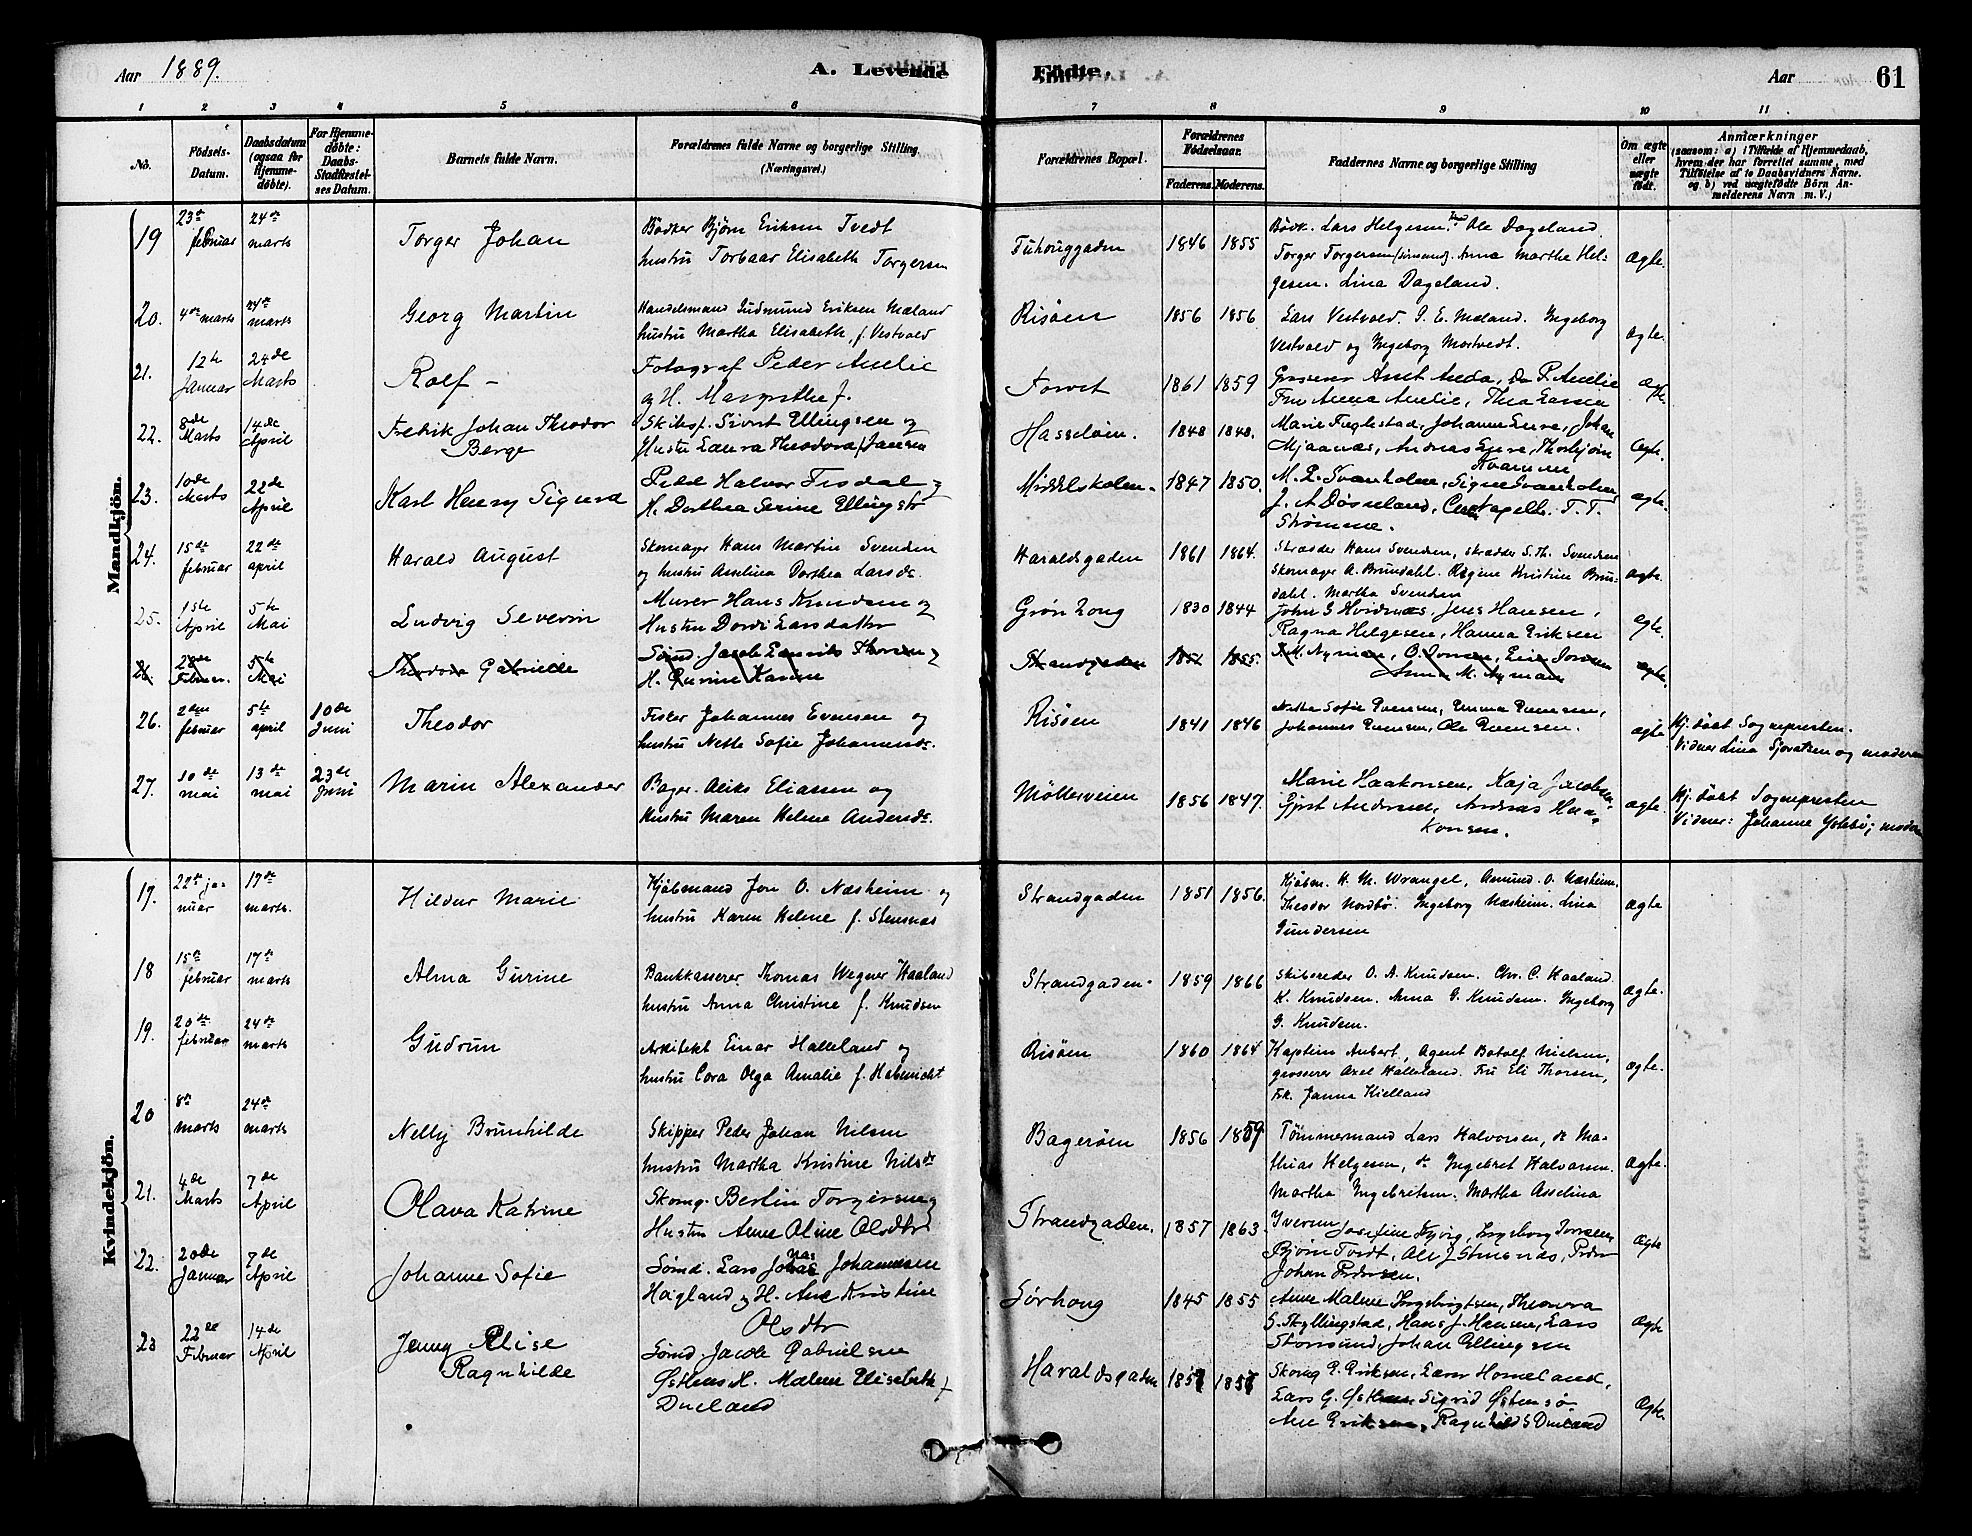 Aar 1889.
A. Levende Fødte.
Aar
61
1 2 3 4 5 6 7 8 9 10 11
No.
Fødsels-Datum.
Daabsdatum (ogsaa for Hjemmedøbte).
For Hjemmedøbte: Daabs-Stadfæstelses Datum.
Barnets fulde Navn.
Forældrenes fulde Navne og borgerlige Stilling. (Næringsvei.)
Forældrenes Bopæl.
Forældrenes Fødselsaar.
Faderens. Moderens.
Faddernes Navne og borgerlige Stilling
Om ægte eller uægte født.
Anmærkninger (saasom: a) i Tilfælde af Hjemmedaab, hvem der har forrettet samme, med Tilføielse af to Daabsvidners Navne. og b) ved uægtefødte Børn Anmelderens Navn m. V.)
Mandkjøn.
19 23de februar 24de marts Torger Johan
Bødker Bjørn Eriksen Tvedt
hustru Torbaar Elisabeth Torgersen
1846 1855
Bødk. Lars Helgesen. Ole Dageland.
Torger Torgersen Anna Marthe Helgesen. Lina Dageland.
ægte.
20. 4de marts 24de marts Georg Martin
Handelsmand Gudmund Eriksen Mæland
hustru Martha Elisabeth f. Vestvold
Risøen 1856 1856
Lars Vestvold. Mæland. Ingeborg
Vestvold og Ingeborg Mostvedt.
ægte.
21. 12te Januar 24de Marts Rolf –
Fotograf Peder Amelie
og H. Margrethe f.
Torvet 1861 1859
Fru Anna Amelie, Thea Larsen
ægt.
22. 8de Marts 14de April Fredrik Johan Theodor Berge
Skibsf. Sivert Ellingsen og
Hustru Laura Theodora f. Jansen
Hasseløen. 1848 1848.
Marie Fuglestad, Johanne Enra, Johan
Mjaanæs, Andreas Thorbjørn Kvamme
ægte.
23. 10de Marts 22de April Karl Henry Sigurd
Halvor Tisdal
H. Dorthea Serine Ellingsdtr
Middelskolen. 1847 1850.
M. P. Svanholm, Signe Svanholm
J. A. Døsseland, T. T.
Strømme.
ægte.
24. 15de februar 22de april Harald August
Skomager Hans Martin Svendsen
og hustru Asselina Dorthea Larsdr.
Haraldsgaden 1861 1864.
Skrædder Hans Svendsen, skrædder S. Th. Svendsen
Skomager A. Brundahl. Regine Kristine Brundahl. Martha Svendsen
ægte.
25. 1ste April 5te Mai Ludvig Severin
Murer Hans Knudsen og
Hustru Dordi Larsdatter
Grønhoug 1830 1844
John G Hvidnæs, Jens Hansen,
Ragna Helgesen, Hanna Eriksen
ægte.
26. 28de Februar. 5te Mai Theodora Gabrielle
Sømd. Jacob Laurits
H. Gurine Karine
Strandgaden 1852 1855.
Anna M. Nyman
ægte.
26. 2den februar 5te april 10de Juni Theodor
Fisker Johannes Evensen og
hustru Nette Sofie Johannesdr.
Risøen 1841 1846
Nette Sofie Evensen, Emma Evensen,
Johannes Evensen, Ole Evensen.
ægte
Hj. døbt Sognepresten.
Vidner Lina Sjovatsen og moderen
27. 10de mai 13de mai 23de Juni Marin Alexander
Bager. Eliassen og
Hustru Maren Helene Andersdr.
Møllerveien 1856 1847.
Marie Haakonsen, Kaja Jacobsen,
Andersen, Andreas Haakonsen.
ægte.
Hj. døbt Sognepresten
Vidner: Johanne moderen
Kvindekjøn.
17. 22de januar 17de marts. Hildur Marie
Kjøbmand Jon O. Næsheim og
hustru Karen Helene f. Stensnæs
Strandgaden 1851 1856.
Kjøbm. H. M. Wrangel, Asmund O. Næsheim.
Theodor Nordbø. Ingeborg Næsheim. Lina
Gundersen
ægte
18 15de februar 17de marts Alma Gurine
Bankkasserer Thomas Wegner Haaland
hustru Anna Christine f. Knudsen
Strandgaden. 1859 1866
Skibsreder O. A. Knudsen. Chr. C. Haaland.
K. Knudsen. Anna G. Knudsen. Ingeborg
G. Knudsen.
ægte.
19. 20de februar 24de marts Gudrun
Arkitekt Einar Halleland og
hustru Cora Olga Amalie f. Habenicht
Risøen 1860 1864
Kaptein Aubert, Agent Botolf Nielsen,
grosserer Axel Halleland. Fru Eli Thorsen,
Frk. Janna Kielland
ægte.
20 8de marts 24de marts Nelly Brunhilde
Skipper Peder Johan Nilsen
hustru Martha Kristine Nilsdr
Bagerøen 1856 1859
Tømmermand Lars Halvorsen, do Mathias Helgesen, do Ingebret Halvorsen.
Martha Ingebretsen. Martha Asselina
Iversen
ægte.
21. 4de Marts 7de April Olava Katrine
Skomg. Bertin Torgersen og
Hustru Anne Oline Olsdtr
Strandgaden. 1857 1863.
Josefine Bjørg, Ingeborg Torresen
Bjørn Tvedt, Ole J Stensnæs, Peder
Johan Pedersen.
Ægte
22. 20de Januar 7de April Johanne Sofie
Sømd. Lars Jonas Johannesen
Høigland og H. Ane Kristine
Olsdtr
Sørhoug 1845 1855
Anne Malene Ingebrigtsen, Theodora
G. Skyllingstad, Hans J. Hansen, Lars
Storesund, Johan Ellingsen
Ægte
23 22de Februar 14de April Jenny Elise Ragnhilde
Sømd. Jacob Gabrielsen
Østhus H. Malene Elisabeth f
Dueland
Haraldsgaden 1857 1857
Skomg P. Eriksen, Lars Homeland,
Lars G. Sigrid Østensø
Ane Eriksen, Ragnhild S Dueland
Ægte.